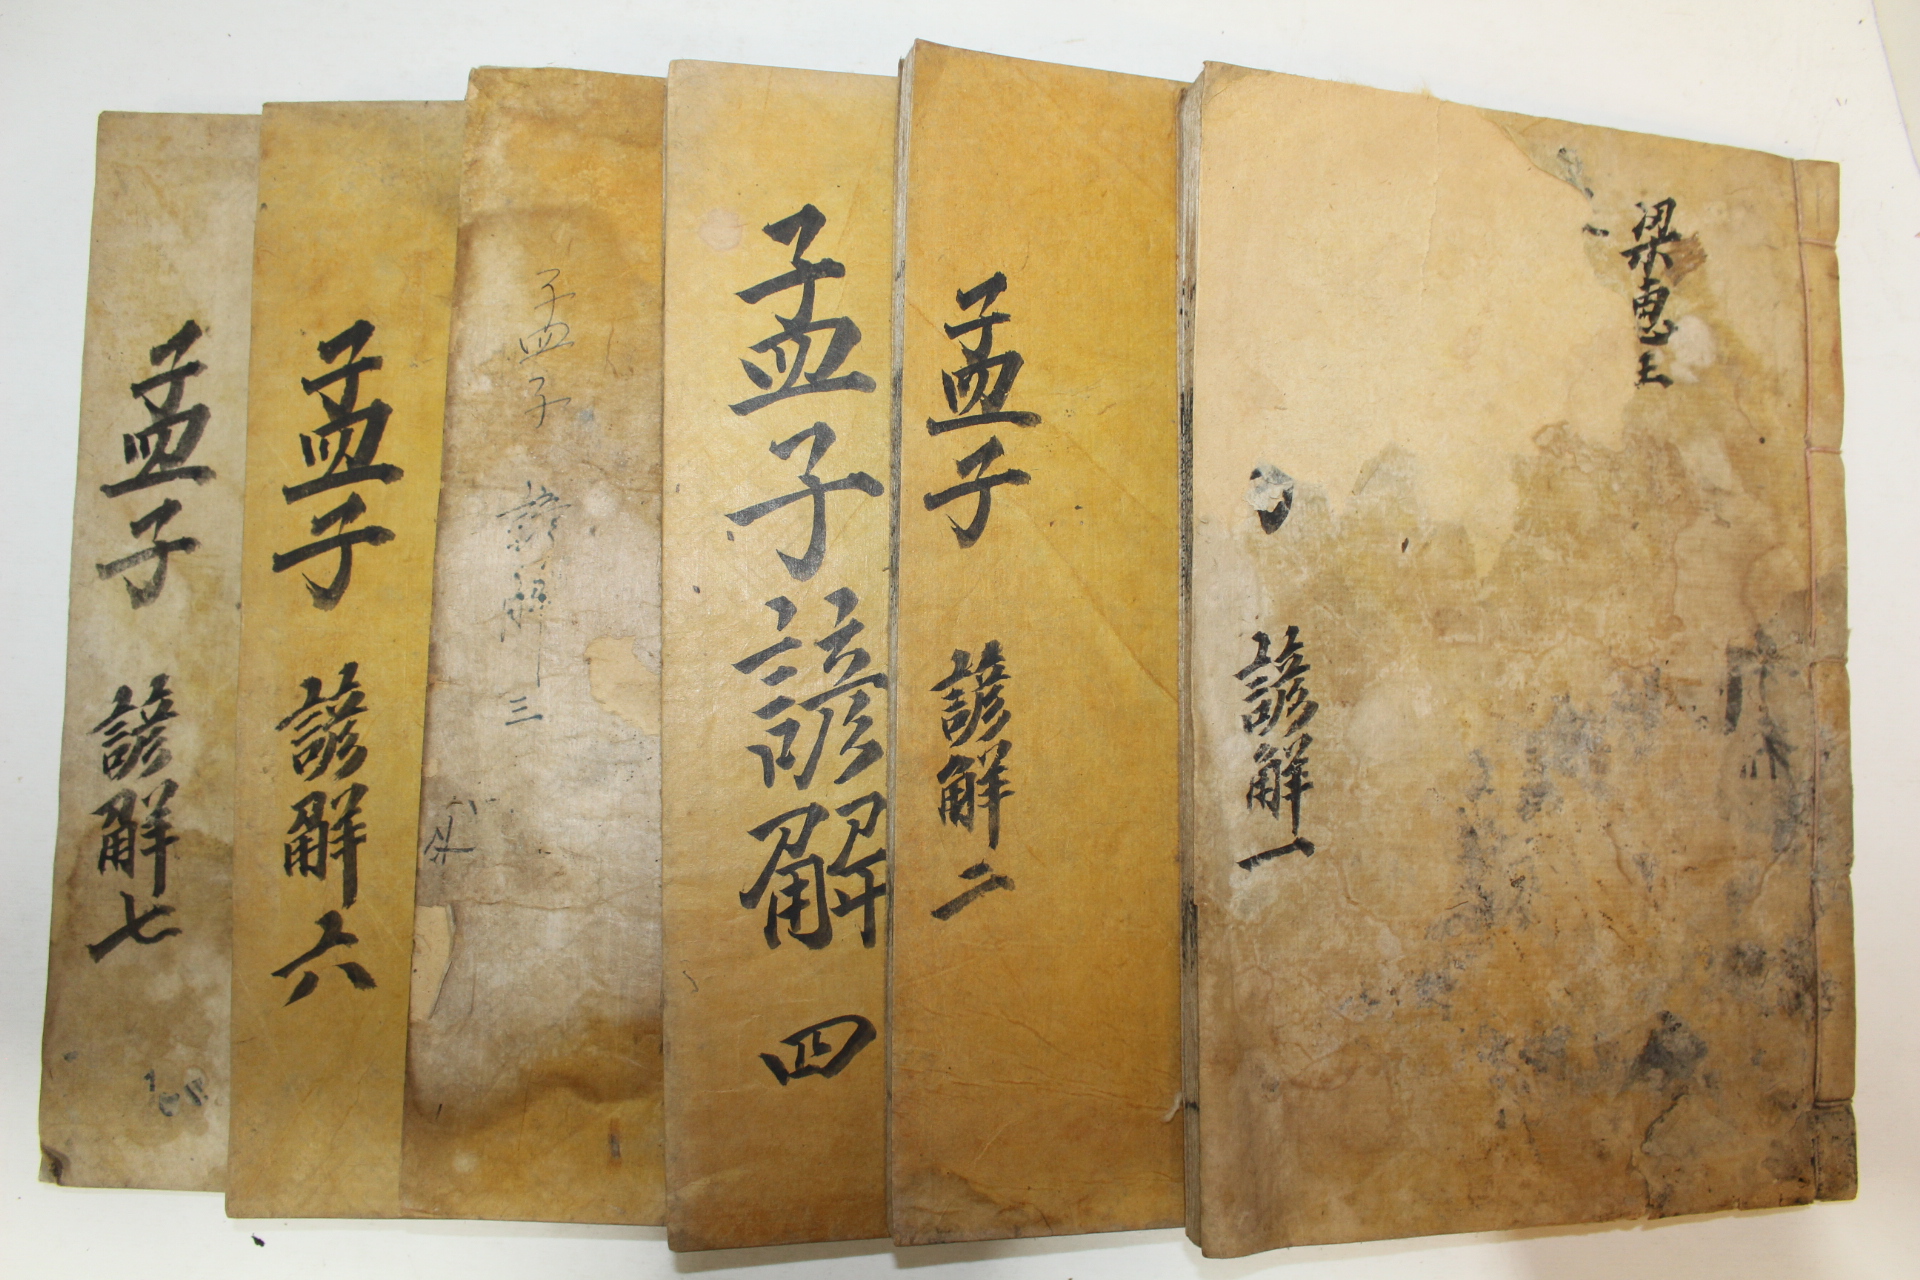 梁惠王
諺解一
孟子
諺解二
孟子諺解
四
孟子
諺解
三
孟子
諺解六
孟子
諺解七